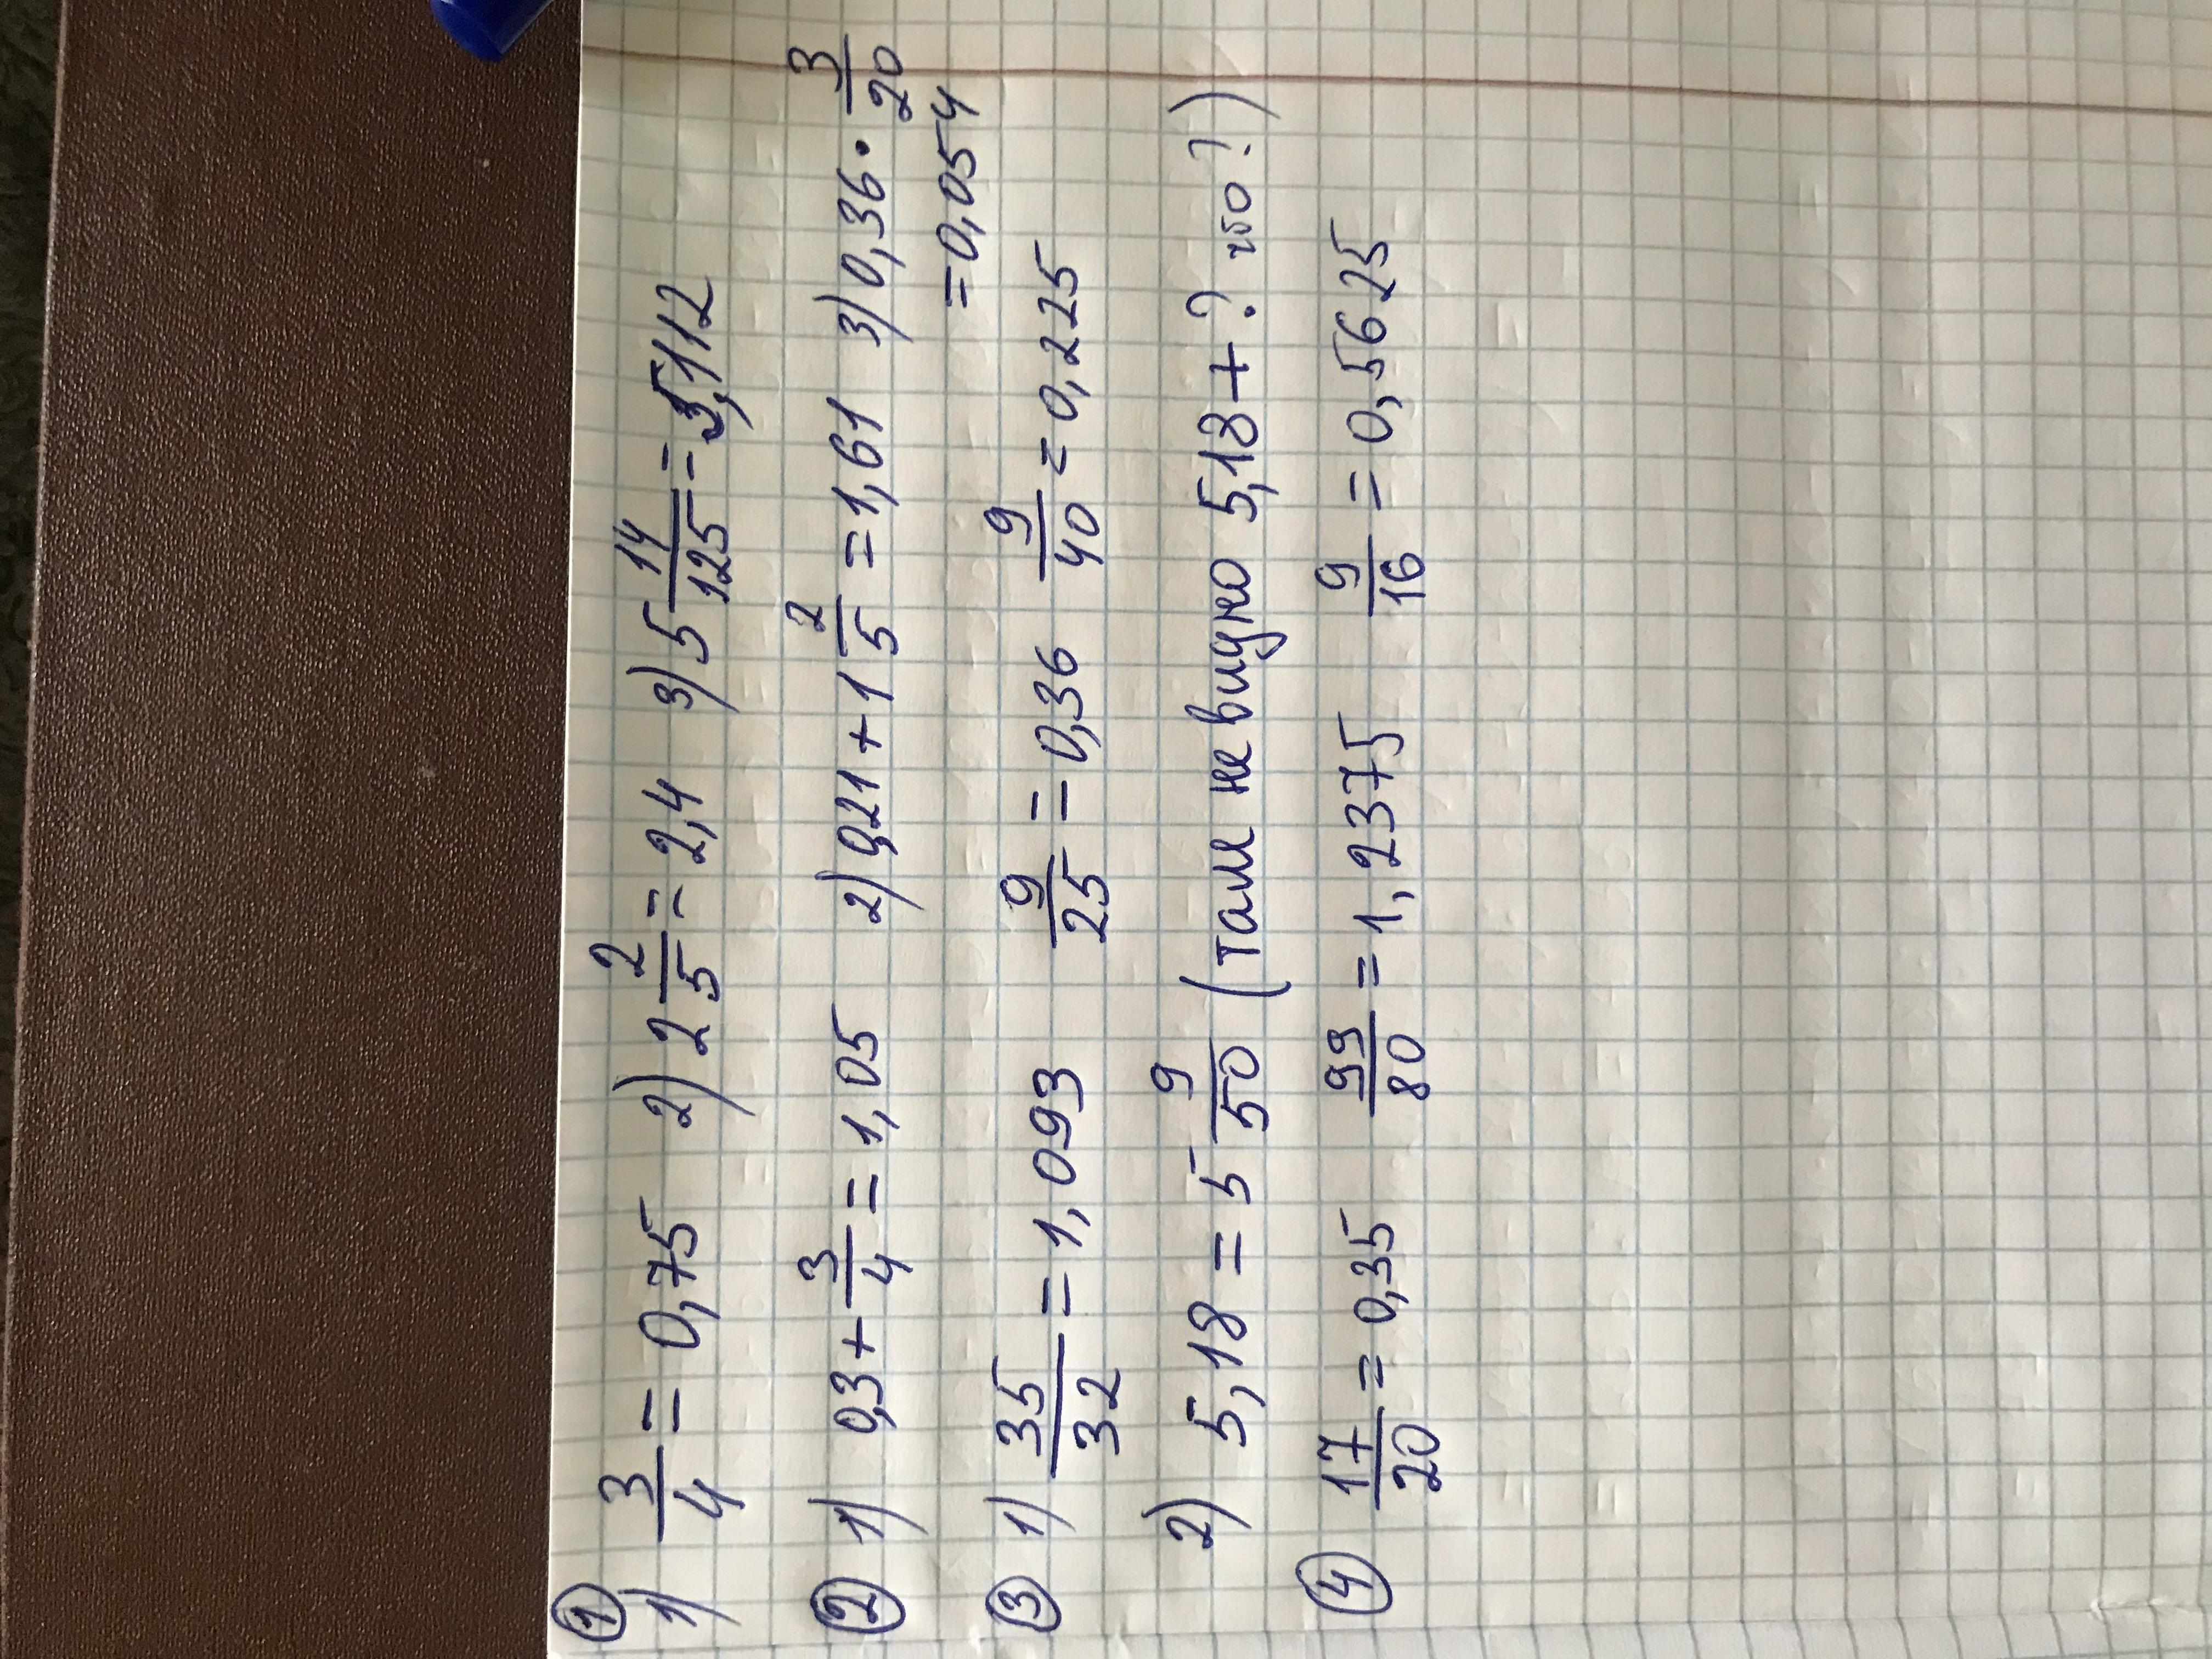 ①
1) 3/4 = 0,75 2) 2 2/5 = 2,4 3) 5 14/125 = 5,112
② 1) 0,3 + 3/4 = 1,05 2) 0,21 + 1 2/5 = 1,61 3) 0,36 · 3/20
= 0,054
③ 1) 35/32 = 1,093 9/25 = 0,36 9/40 = 0,225
2) 5,18 = 5 9/50 (там не видно 5,18 + ? что?)
④ 17/20 = 0,35 99/80 = 1,2375 9/16 = 0,5625